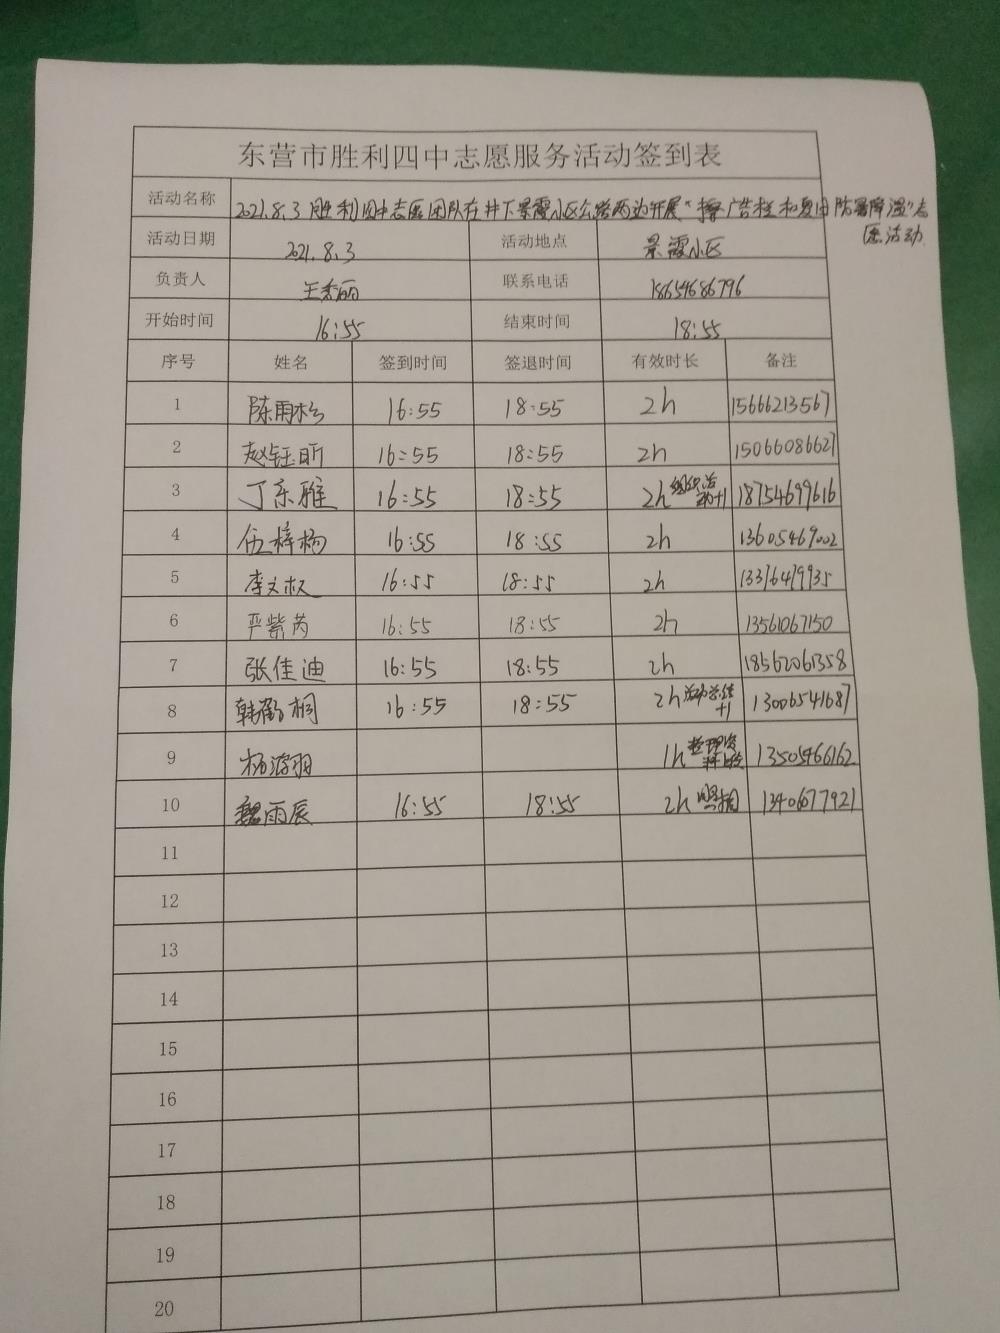 东营市胜利四中志愿服务活动签到表
活动名称 2021.8.3胜利四中志愿团队在井下景霞小区公路两边开展“擦广告栏和夏日防暑降温”志
愿活动
活动日期 2021.8.3 活动地点 景霞小区
负责人 王秀丽 联系电话 18654686796
开始时间 16:55 结束时间 18:55
序号 姓名 签到时间 签退时间 有效时长 备注
1 陈雨松 16:55 18:55 2h 15666213567
2 赵钰昕 16:55 18:55 2h 15066086627
3 丁乐雅 16:55 18:55 2h 组织活动+1 18754699616
4 伍梓杨 16:55 18:55 2h 13605469002
5 李文权 16:55 18:55 2h 13376479935
6 严紫芮 16:55 18:55 2h 13561067150
7 张佳迪 16:55 18:55 2h 18562061358
8 韩桐 16:55 18:55 2h 活动总结+1 13006541687
9 杨游翔 1h 整理资料 13505466162
10 魏雨辰 16:55 18:55 2h 照相 1340677921
11
12
13
14
15
16
17
18
19
20